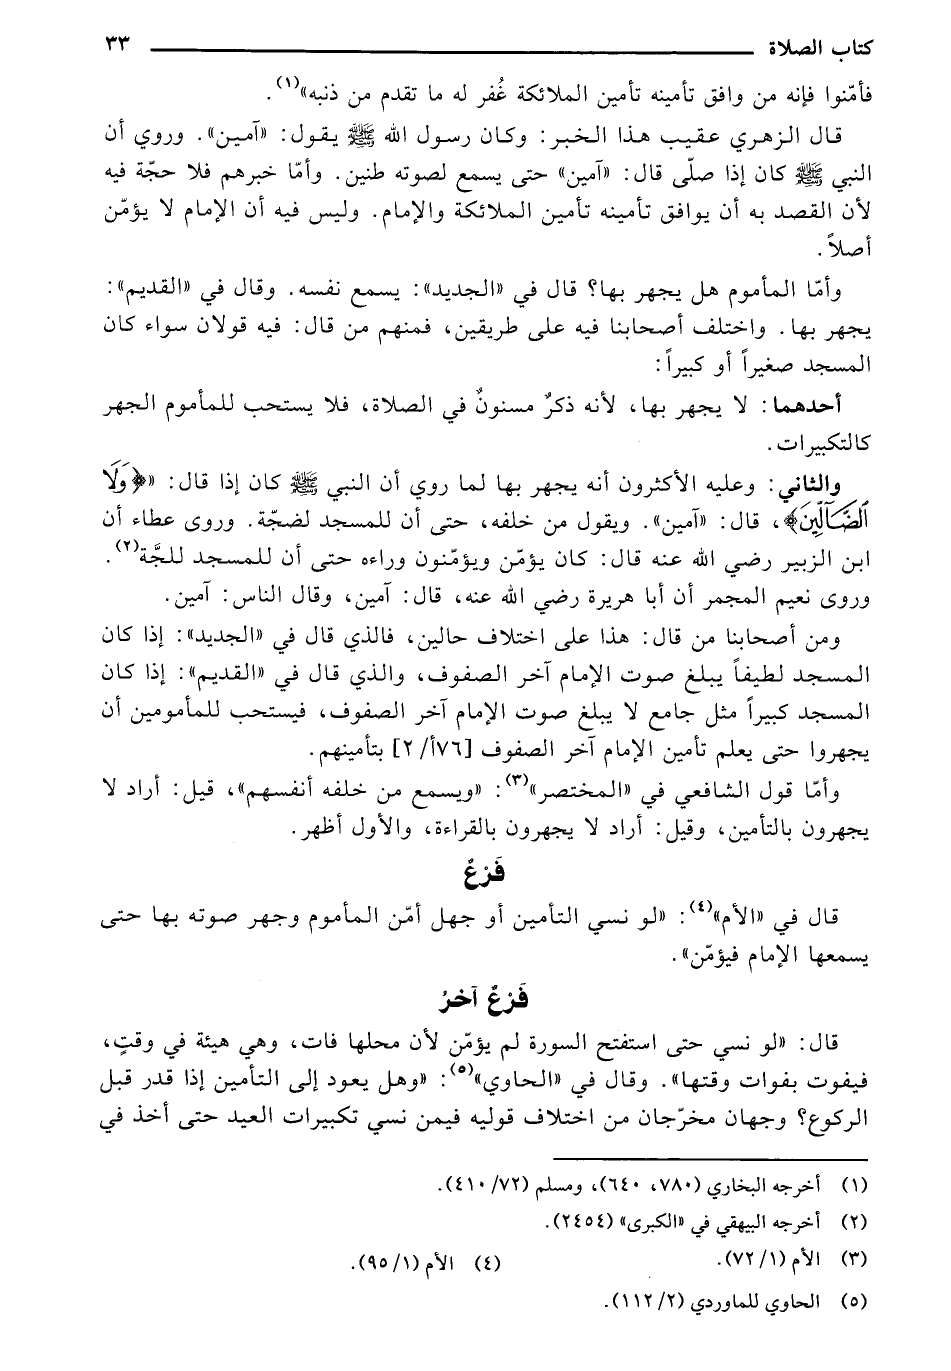 كتاب الصلاة ٣٣
فأمّنوا فإنه من وافق تأمينه تأمين الملائكة غُفر له ما تقدم من ذنبه»(١).
قال الزهري عقيب هذا الخبر: وكان رسول الله ﷺ يقول: «آمين». وروي أن
النبي ﷺ كان إذا صلّى قال: «آمين» حتى يسمع لصوته طنين. وأمّا خبرهم فلا حجّة فيه
لأن القصد به أن يوافق تأمينه تأمين الملائكة والإمام. وليس فيه أن الإمام لا يؤمّن
أصلاً.
وأمّا المأموم هل يجهر بها؟ قال في «الجديد»: يسمع نفسه. وقال في «القديم»:
يجهر بها. واختلف أصحابنا فيه على طريقين، فمنهم من قال: فيه قولان سواء كان
المسجد صغيراً أو كبيراً:
أحدهما: لا يجهر بها، لأنه ذكرٌ مسنونٌ في الصلاة، فلا يستحب للمأموم الجهر
كالتكبيرات.
والثاني: وعليه الأكثرون أنه يجهر بها لما روي أن النبي ﷺ كان إذا قال: «﴿وَلَا
ٱلضَّآلِّينَ﴾، قال: «آمين». ويقول من خلفه، حتى أن للمسجد لضجّة. وروى عطاء أن
ابن الزبير رضي الله عنه قال: كان يؤمّن ويؤمّنون وراءه حتى أن للمسجد للجَّة(٢).
وروى نعيم المجمر أن أبا هريرة رضي الله عنه، قال: آمين، وقال الناس: آمين.
ومن أصحابنا من قال: هذا على اختلاف حالين، فالذي قال في «الجديد»: إذا كان
المسجد لطيفاً يبلغ صوت الإمام آخر الصفوف، والذي قال في «القديم»: إذا كان
المسجد كبيراً مثل جامع لا يبلغ صوت الإمام آخر الصفوف، فيستحب للمأمومين أن
يجهروا حتى يعلم تأمين الإمام آخر الصفوف [٧٦أ/ ٢] بتأمينهم.
وأمّا قول الشافعي في «المختصر»(٣): «ويسمع من خلفه أنفسهم»، قيل: أراد لا
يجهرون بالتأمين، وقيل: أراد لا يجهرون بالقراءة، والأول أظهر.
فَرْعٌ
قال في «الأم»(٤): «لو نسي التأمين أو جهل أمّن المأموم وجهر صوته بها حتى
يسمعها الإمام فيؤمّن».
فَرْعٌ آخرُ
قال: «لو نسي حتى استفتح السورة لم يؤمّن لأن محلها فات، وهي هيئة في وقتٍ،
فيفوت بفوات وقتها». وقال في «الحاوي»(٥): «وهل يعود إلى التأمين إذا قدر قبل
الركوع؟ وجهان مخرّجان من اختلاف قوليه فيمن نسي تكبيرات العيد حتى أخذ في
(١) أخرجه البخاري (٧٨٠، ٦٤٠)، ومسلم (٧٢/ ٤١٠).
(٢) أخرجه البيهقي في «الكبرى» (٢٤٥٤).
(٣) الأم (١/ ٧٢). (٤) الأم (١/ ٩٥).
(٥) الحاوي للماوردي (٢/ ١١٢).